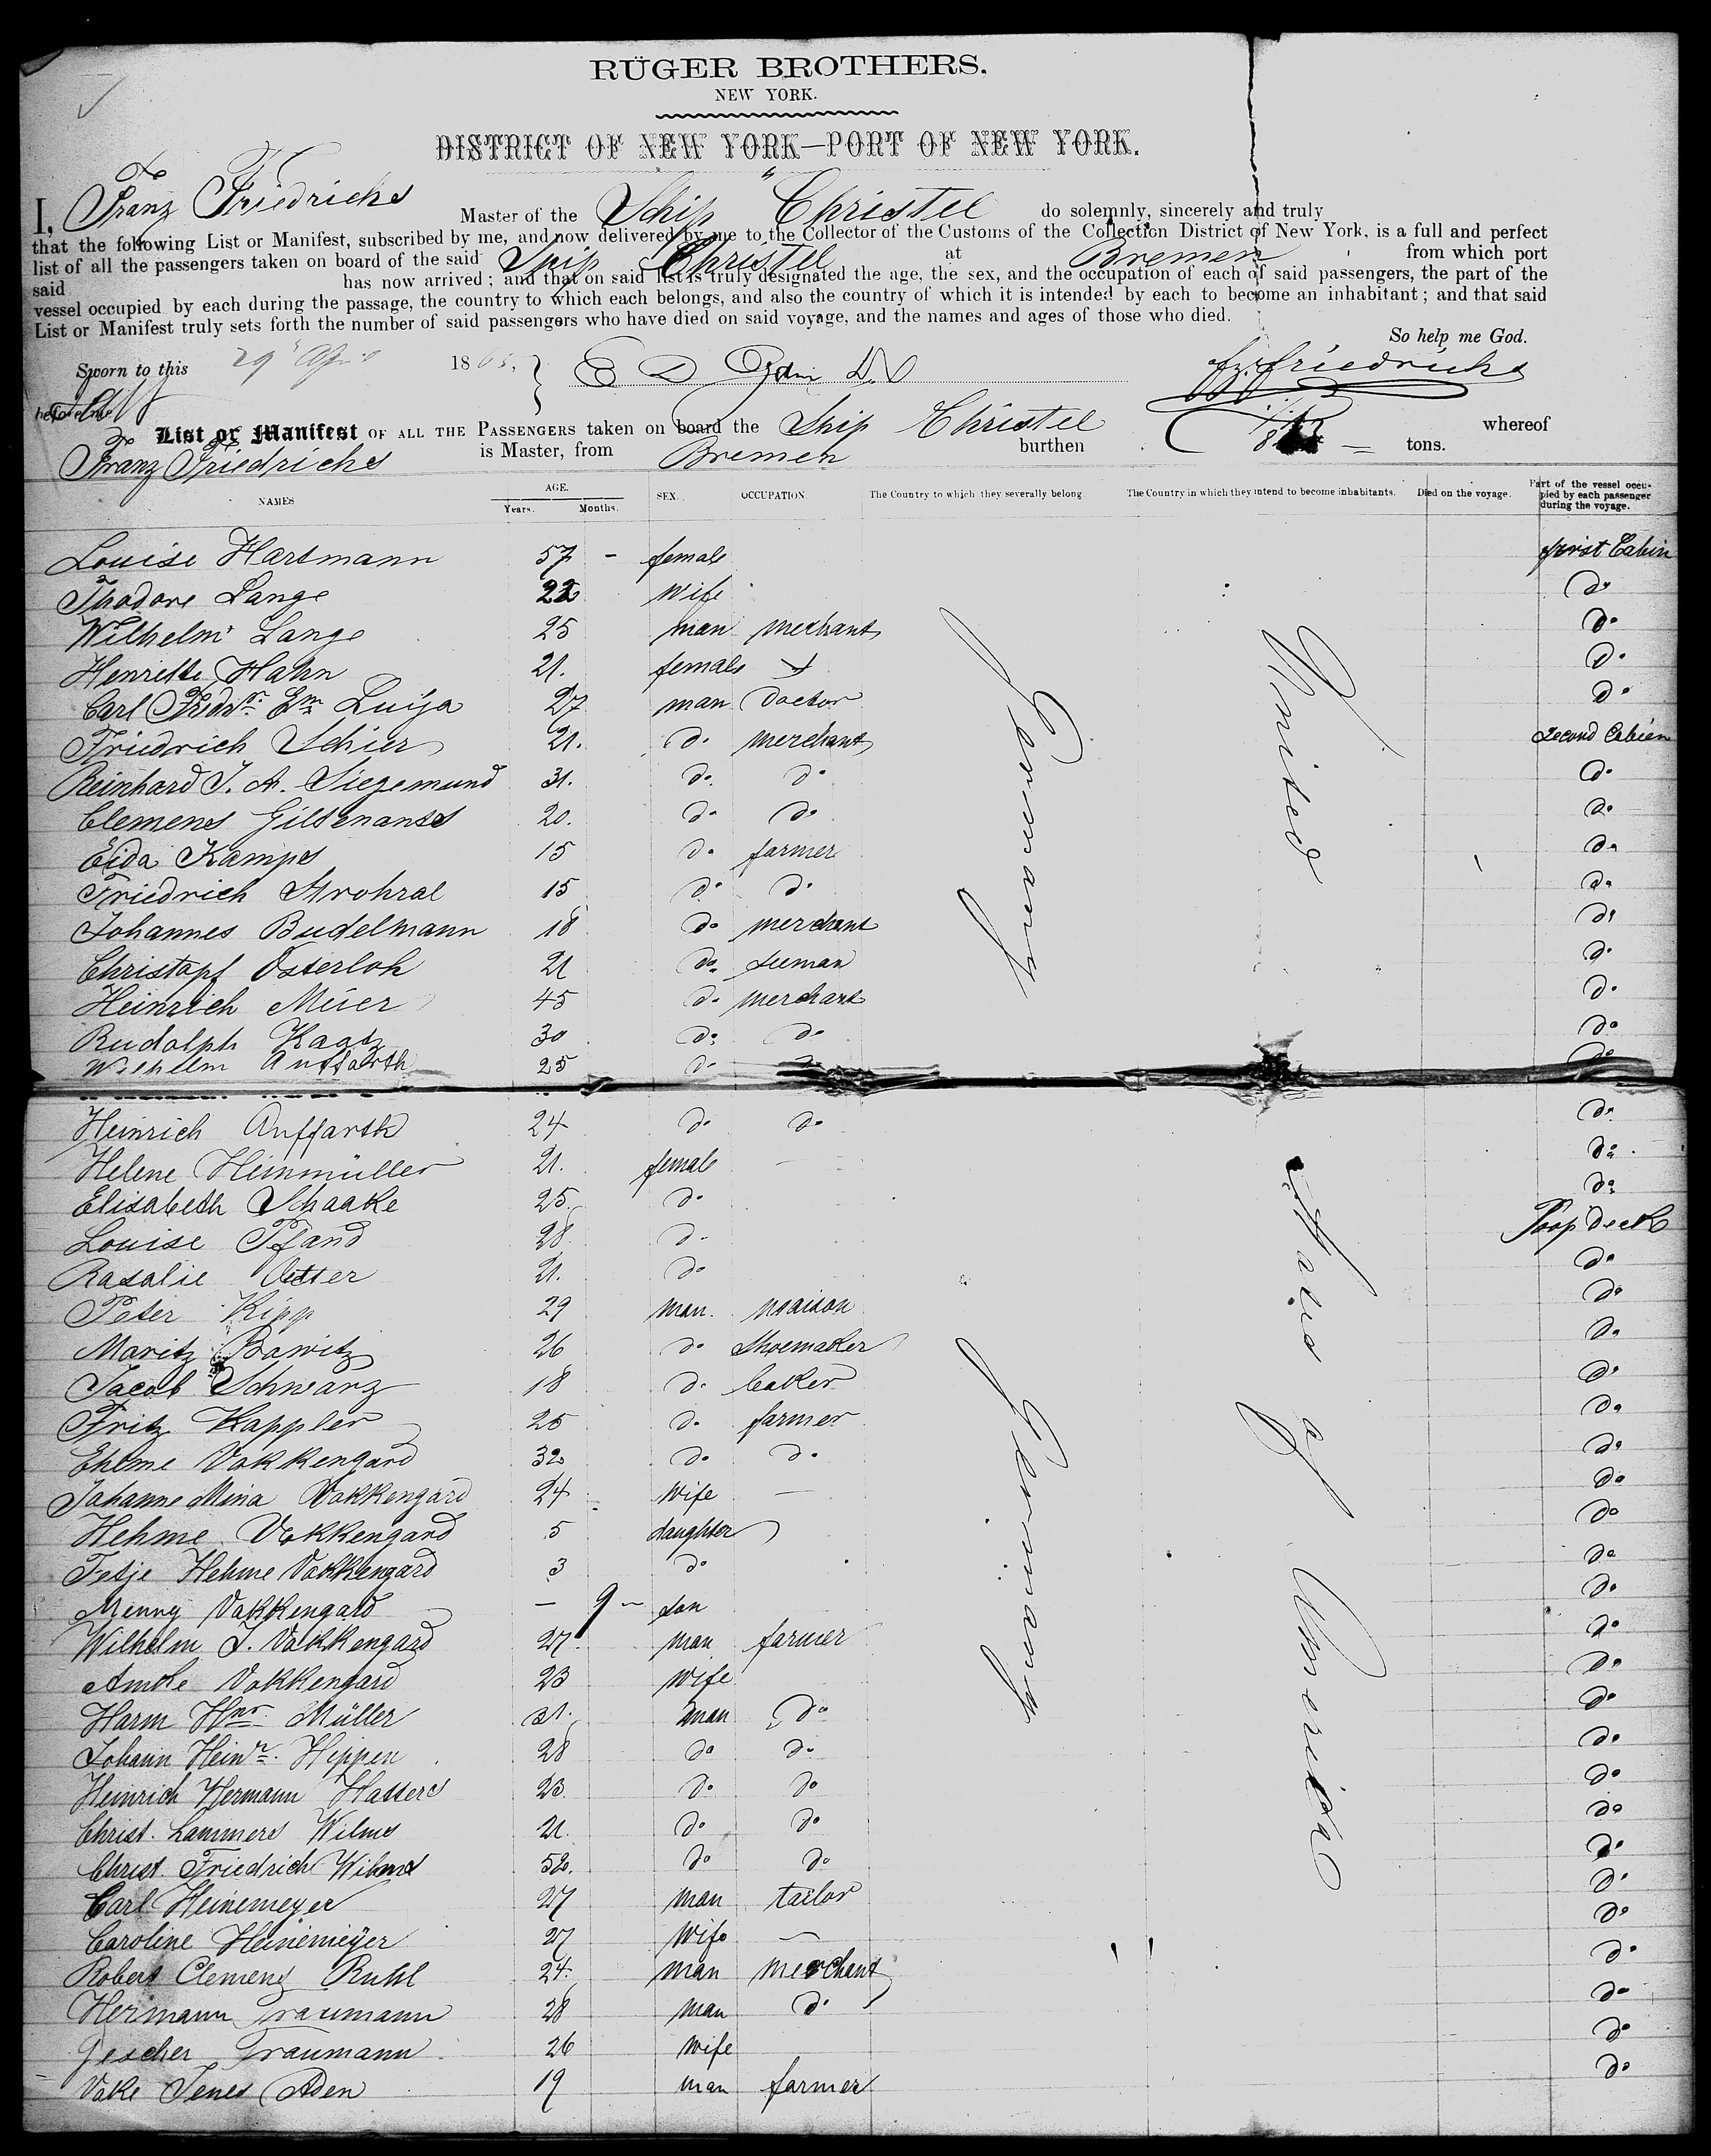 RÜGER BROTHERS.
NEW YORK.
DISTRICT OF NEW YORK—PORT OF NEW YORK.
I, Franz Friedrichs Master of the Ship "Christel do solemnly, sincerely and truly
that the following List or Manifest, subscribed by me, and now delivered by me to the Collector of the Customs of the Collection District of New York, is a full and perfect
list of all the passengers taken on board of the said Ship Christel at Bremen from which port
said has now arrived; and that on said list is truly designated the age, the sex, and the occupation of each of said passengers, the part of the
vessel occupied by each during the passage, the country to which each belongs, and also the country of which it is intended by each to become an inhabitant; and that said
List or Manifest truly sets forth the number of said passengers who have died on said voyage, and the names and ages of those who died.
So help me God.
Sworn to this 29 April 18 fz. friedrichs
before me
List or Manifest OF ALL THE PASSENGERS taken on board the Ship Christel whereof
Franz Friedrichs is Master, from Bremen burthen tons.
NAMES AGE. Years. Months. SEX. OCCUPATION. The Country to which they severally belong. The Country in which they intend to become inhabitants. Died on the voyage. Part of the vessel occupied by each passenger during the voyage.
Louise Hartmann 57 - female first Cabin
Thodore Lange 22 wife do
Wilhelm Lange 25 man merchant do
Henriette Hahn 21. female do
Carl Fredr. Em Luija 27 man Doctor do
Friedrich Schier 21. do merchant second Cabien
Reinhard J. A. Siegemund 31. do do do
Clemens Gildenanss 20. do do do
Eida Kamps 15 do farmer do
Friedrich Strohsal 15 do do do
Johannes Budelmann 18 do merchant do
Christopf Osterloh 21 do seeman do
Heinrich Meier 45 do merchant do
Rudolph Kaatz 30 do do do
Wilhelm Auffarth 25 do do do
Heinrich Auffarth 24 do do do
Helene Heinmüller 21. female — do
Elisabeth Schaake 25. do do
Louise Pfand 28 do Poop deck
Rasalie Vetter 21. do do
Peter Kipp 29 man maison do
Moritz Bawitz 26 do Shoemaker do
Jacob Schwarz 18 do baker do
Fritz Kappler 25 do farmer do
Eheme Vakkengard 32 do do do
Johanne Mina Vakkengard 24 wife — do
Hehme Vakkengard 5 daughter do
Fetje Hehme Vakkengard 3 do do
Menny Vakkengard — 9 - son do
Wilhelm J. Vakkengard 27. man farmer do
Amke Vakkengard 23 wife do
Harm Hnr. Müller 21. man do do
Johann Heinr. Heppen 28 do do do
Heinrich Hermann Hassers 23. do do do
Christ. Lammers Wilms 21. do do do
Christ Friedrich Wilms 52. do do do
Carl Heinemeyer 27 man tailor do
Caroline Heinemeÿer 27 wife — do
Robert Clemens Ruhl 24. man merchant do
Hermann Traumann 28 man do do
Gescher Traumann 26 wife do
Vake Jenes Aden 19 man farmer do
Germany
Germany
United
States of America